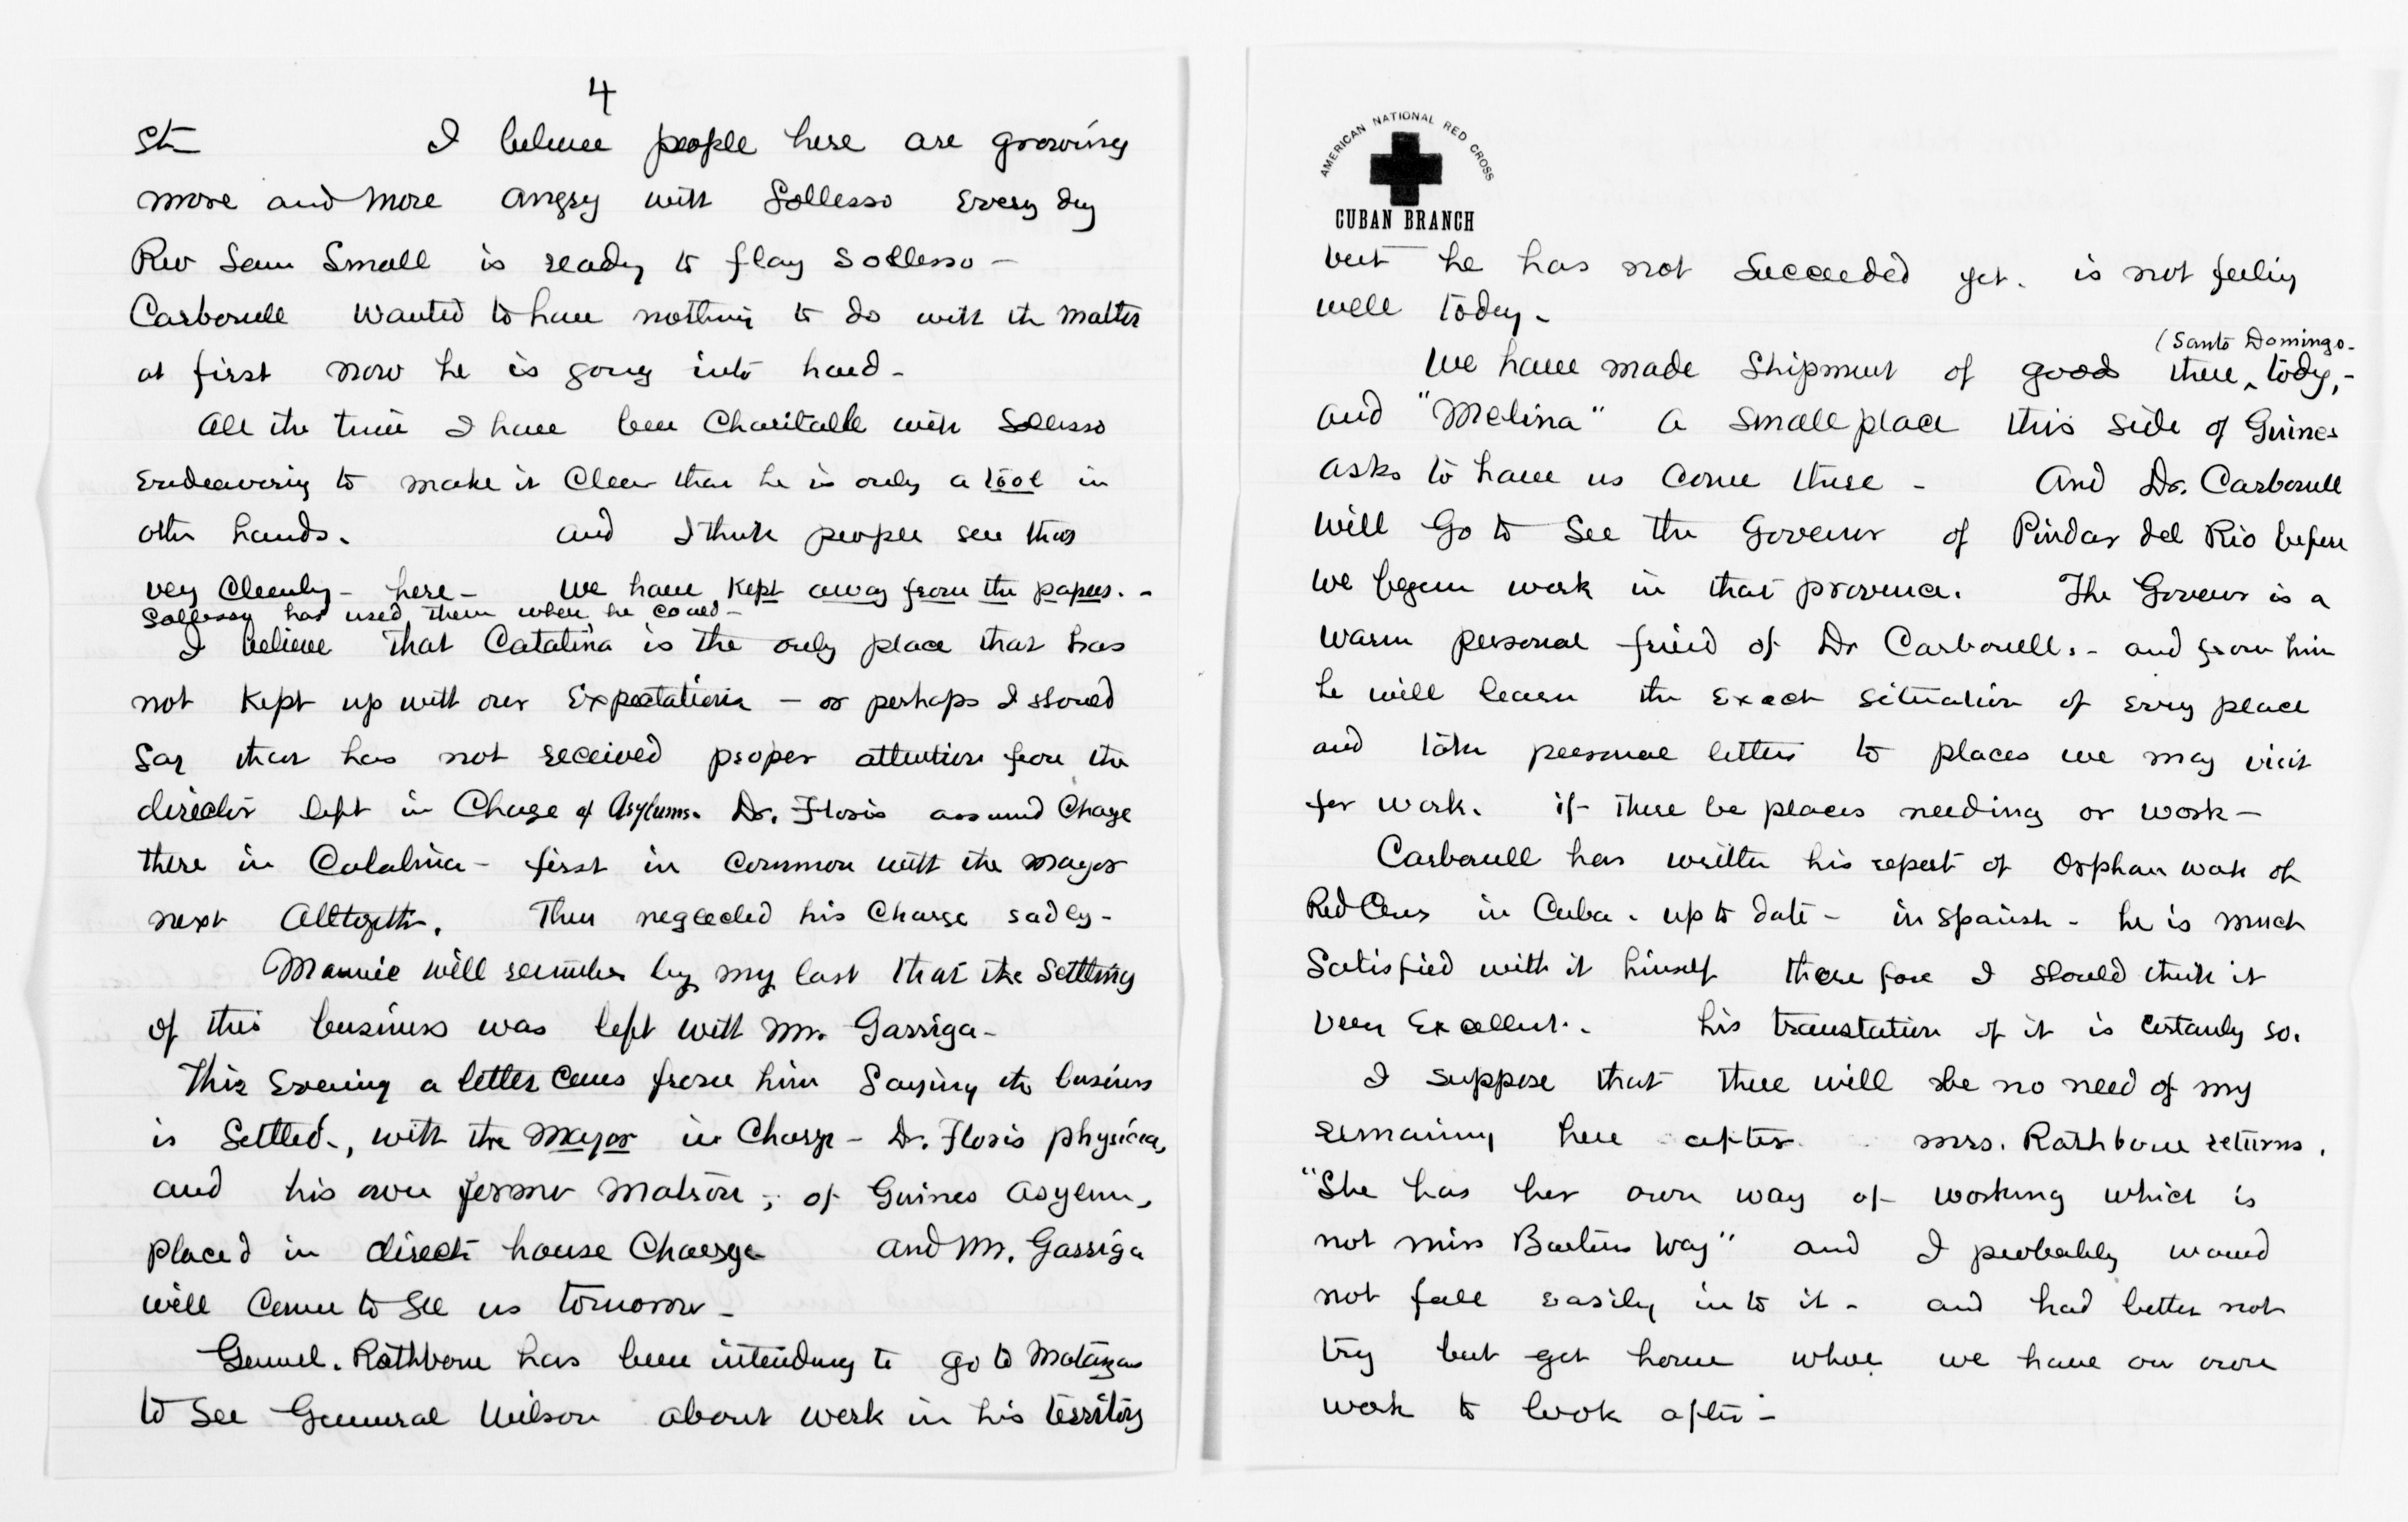 4
St— I believe people here are growing
more and more angry with Sollesso every day
Rev Sam Small is ready to flay Sollesso —
Carbonell wanted to have nothing to do with the matter
at first now he is going into hard —
All the time I have been Charitable with Sollesso
endeavoring to make it Clear that he is only a tool in
other hands. and I think people see this
very Clearly — here — We have kept away from the papers. —
Sollessy has used them when he could —
I believe that Catalina is the only place that has
not kept up with our Expectations — or perhaps I should
say that has not received proper attention from the
director left in Charge of Asylums. Dr. Floris assumed Charge
there in Catalina — first in common with the mayor
next Alltogether. Then neglected his Charge sadly —
Mamie will remember by my last that the settling
of this business was left with Mr. Garriga —
This Evening a letter comes from him saying the business
is Settled —, with the Mayor in Charge — Dr. Floris physician,
and his own former Matron, of Guines asylum,
placed in direct house Charge and Mr. Garriga
will come to see us tomorrow —
Genneel. Rathbone has been intending to go to Matanzas
to see Gennural Wilson about work in his territory
AMERICAN NATIONAL RED CROSS
CUBAN BRANCH
but he has not succeeded yet. is not feeling
well today —
(Santo Domingo —
We have made shipment of goods there ^ today, —
and "Melina" a small place this side of Guines
asks to have us come there — And Dr. Carbonell
will go to see the Govenor of Pindar del Rio before
we began work in that province. The Govenor is a
warm personal friend of Dr Carbonell. — and from him
he will learn the exact situation of every place
and take personal letters to places we may visit
for work. if there be places needing or work —
Carbonell has written his report of Orphan work of
Red Cross in Cuba. up to date — in spanish — he is much
satisfied with it himself therefore I should think it
very Excellent. his translation of it is certainly so.
I suppose that there will be no need of my
remaining here after mrs. Rathbone returns.
"She has her own way of working which is
not miss Bartons way" and I probably would
not fall easily into it — and had better not
try but get home where we have our own
work to look after —